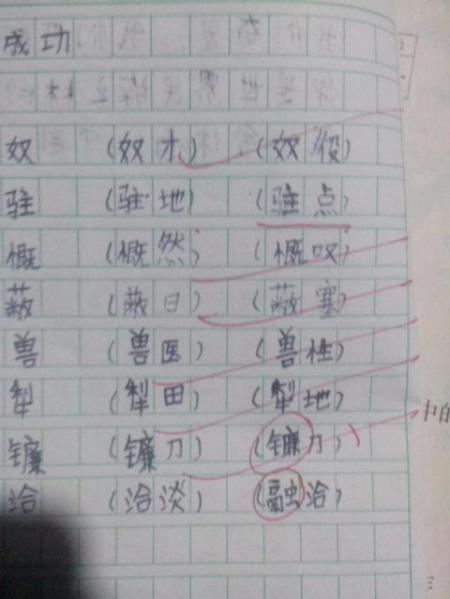 成功
奴 (奴才) (奴役)
驻 (驻地) (驻点)
慨 (慨然) (慨叹)
蔽 (蔽日) (蔽塞)
兽 (兽医) (兽性)
犁 (犁田) (犁地)
镰 (镰刀) (镰刀)
中的
洽 (洽淡) (融洽)